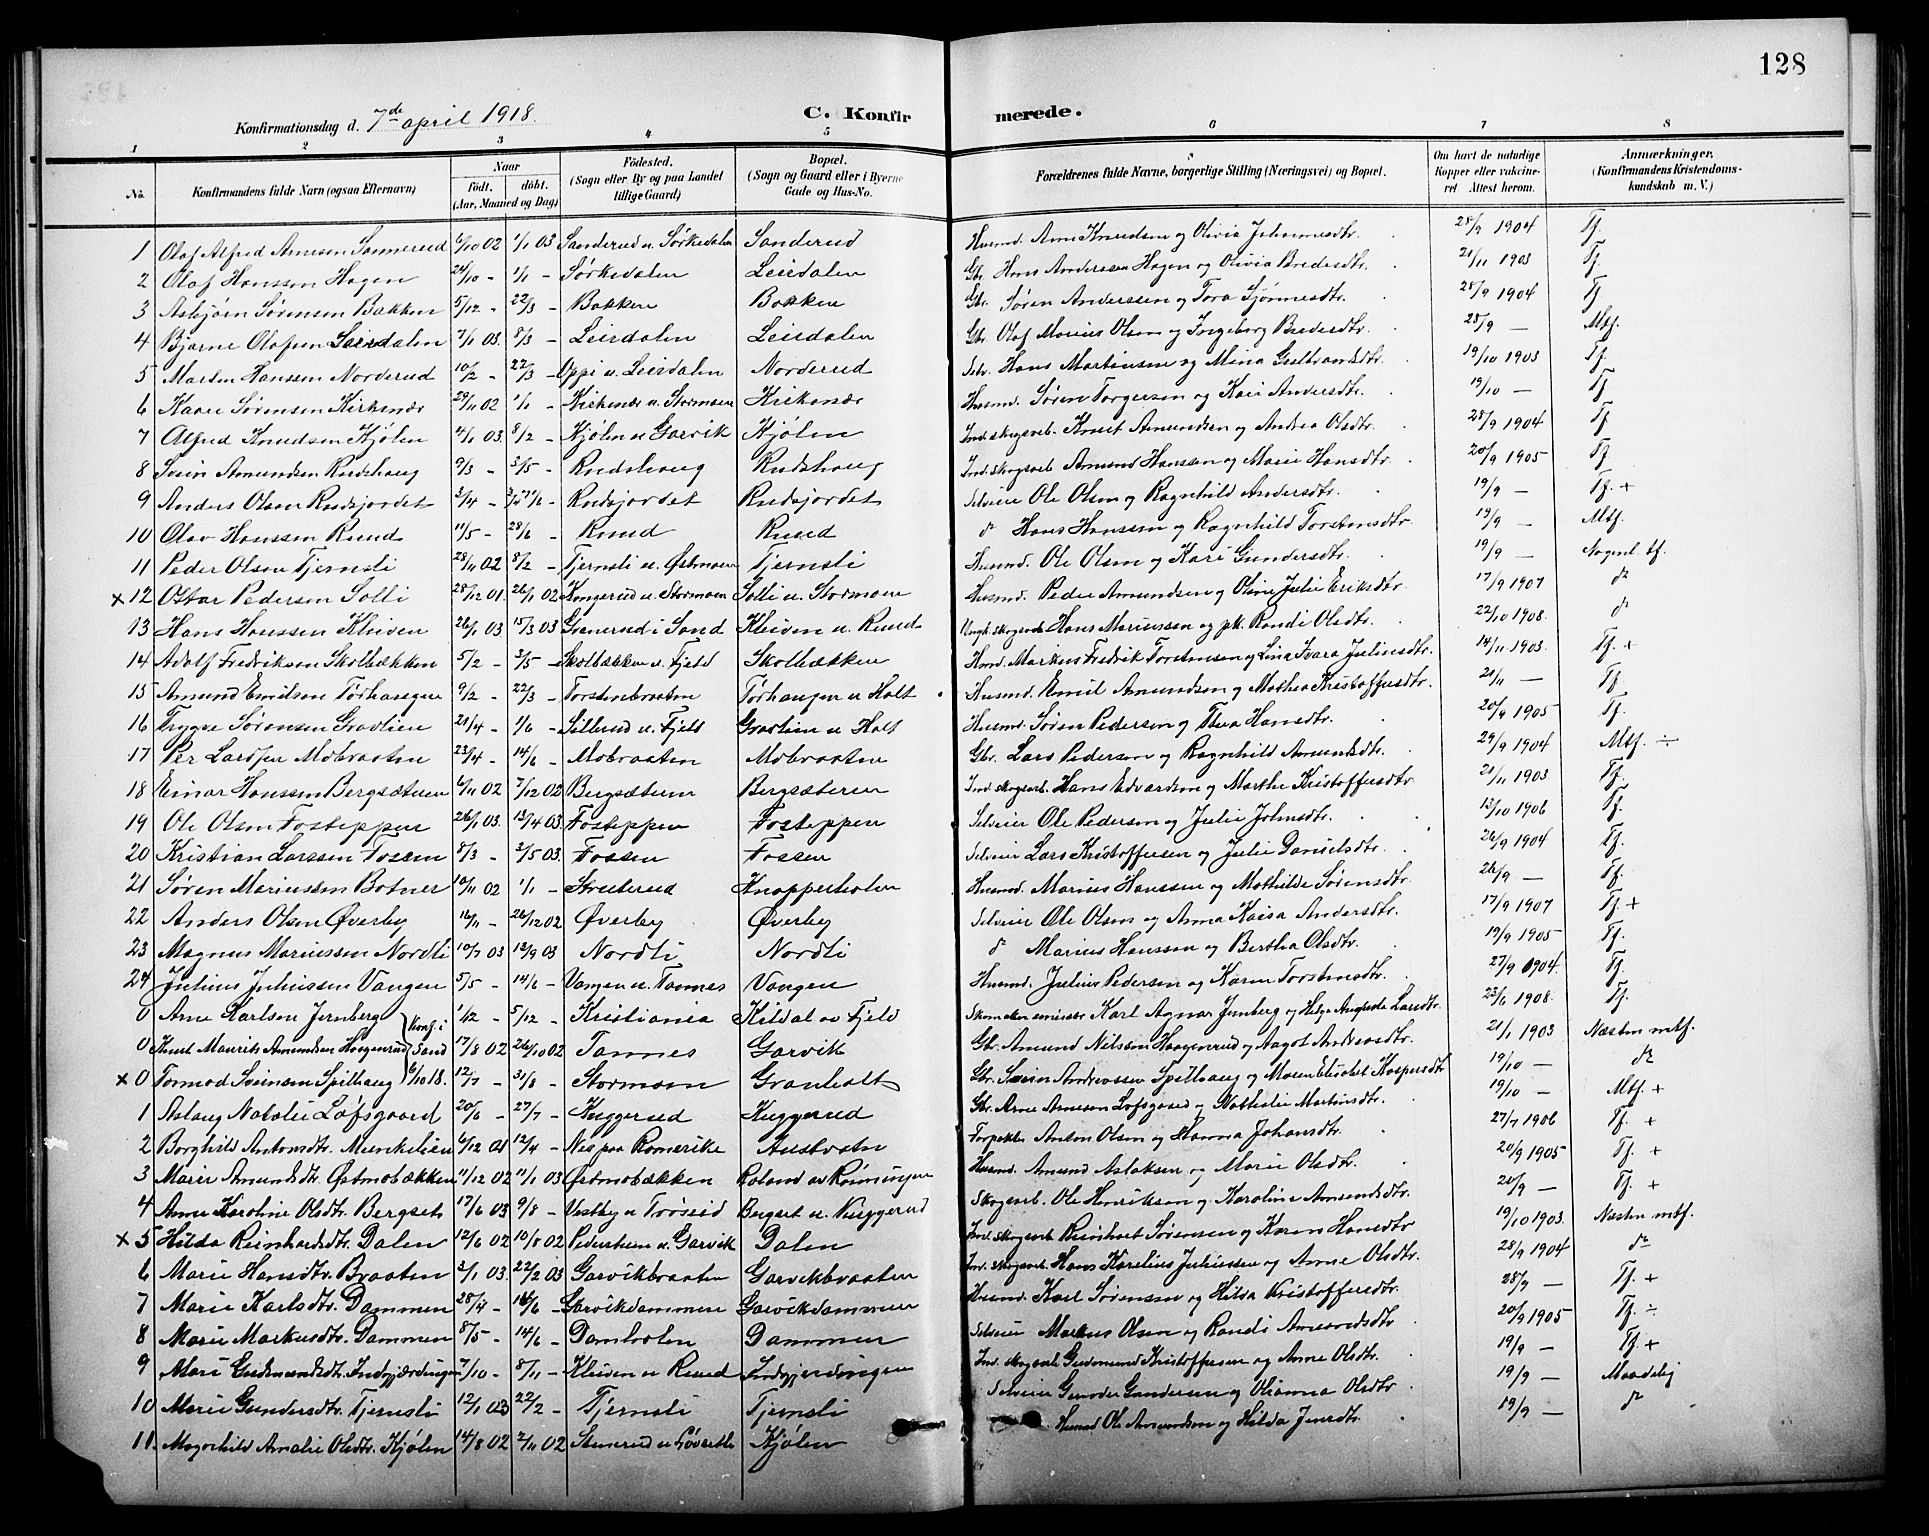 128
Konfirmationsdag d. 7de april 1918.
C. Konfirmerede.
1 2 3 4 5 6 7 8
No. Konfirmandens fulde Navn (ogsaa Efternavn) Naar født. døbt. (Aar, Maaned og Dag) Fødested. (Sogn eller By og paa Landet tillige Gaard) Bopæl. (Sogn og Gaard eller i Byerne Gade og Hus-No. Forældrenes fulde Navne, borgerlige Stilling (Næringsvei) og Bopæl. Om havt de naturlige Kopper eller vakcineret Attest herom. Anmærkninger. (Konfirmandens Kristendomskundskab m. V.)
1 Olaf Alfred Arnesen Sannerud 6/10 02 1/1 03 Sanderud u. Sørkedalen Sanderud Husmd. Arne Knudsen og Olivia Johannesdtr. 28/9 1904 Tf.
2 Olaf Hanssen Hagen 24/10 - 1/1 - Sørkedalen Leirdalen Gbr. Hans Anderssen Hagen og Olivia Bredesdtr. 21/11 1903 Tf.
3 Asbjørn Sørensen Bakken 5/12 - 22/3 - Bakken Bakken Gbr. Søren Anderssen og Tora Sjønnesdtr. 28/9 1904 Tf
4 Bjarne Olafsen Leirdalen 7/1 03. 8/3 - Leirdalen Leirdalen Gbr. Olaf Marius Olsen og Ingeborg Bredesdtr. 28/9 — Mtf.
5 Marten Hanssen Norderud 10/2 - 22/3 - Oppi u. Leirdalen Norderud Selv. Hans Martinsen og Mina Gulbrandsdtr. 19/10 1903 Tf.
6 Kaare Sørensen Kirkenær 29/11 02 1/1 - Kirkenær u. Stormoen Kirkenær Husmd. Søren Torgersen og Kari Andersdtr. 19/10 — Tf
7 Alfred Knudsen Kjølen 4/1 03. 8/2 - Kjølen u. Garvik Kjølen Ind. skogsarb. Knut Amundsen og Andrea Olsdtr. 28/9 1904 Tf.
8 Svein Amundsen Rudshaug 9/3 - 3/5 - Rudshaug Rudshaug Ind. skogsarb. Amund Hanssen og Marie Hansdtr. 20/9 1905 Tf.
9 Anders Olsen Rudsjordet 3/4 - Rudsjordet Rudsjordet Selveier Ole Olsen og Ragnhild Andersdtr. 19/9 — Tf. +
10 Olav Hanssen Ruud 11/5 - 28/6 - Ruud Ruud do Hans Hanssen og Ragnhild Torstensdtr. 19/9 — Mtf.
11 Peder Olsen Tjernsli 28/11 02 8/2 - Tjernsli u. Østmoen Tjernsli Husmd. Ole Olsen og Kari Gundersdtr. 19/9 — Nogenl. tf.
x 12 Ottar Pedersen Solli 28/12 01. 26/1 02 Kongerud u. Stormoen Solli u. Stormoen Husmd. Peder Amundsen og Oline Julie Eriksdtr. 17/9 1907 do
13 Hans Hanssen Kleiven 26/1 03 15/3 03 Granerud i Sand Kleiven u. Ruud Ungk. skogsarb. Hans Mariussen og pk. Randi Olsdtr. 22/10 1908. do
14 Adolf Fredriksen Skolbækken 5/2 - 3/5 - Skolbækken u. Fjeld Skolbækken Husmd. Markus Fredrik Torstensen og Lina Ivara Juliusdtr. 14/11 1903 Tf. +
15 Amund Emilsen Tørhaugen 9/2 - 22/3 - Torstenbraaten Tørhaugen u. Holt Husmd. Emil Amundsen og Mathea Kristoffersdtr. 21/11 — Tf.
16 Trygve Sørensen Gravlien 21/4 - 1/6 - Sillerud u. Fjeld Gravlien u. Holt Husmd. Søren Pedersen og Thea Hansdtr. 20/9 1905 Tf.
17 Per Larssen Mobraaten 23/4 - 14/6 - Mobraaten Mobraaten Gbr. Lars Pedersen og Ragnhild Amundsdtr. 29/9 1904 Mtf. ÷
18 Einar Hanssen Bergsæteren 6/11 02 7/12 02 Bergsæteren Bergsæteren Ind. skogsarb. Hans Edvardsen og Marthe Kristoffersdtr. 21/11 1903 Tf.
19 Ole Olsen Fosteppen 26/1 03. 13/4 03. Fosteppen Fosteppen Selveier Ole Pedersen og Julie Johnsdtr. 13/10 1906 Tf.
20 Kristian Larssen Fossen 8/3 - 3/5 03. Fossen Fossen Selveier Lars Kristoffersen og Julie Danielsdtr. 26/9 1904 Tf.
21 Søren Mariussen Botner 10/11 02 1/1 - Struterud Knapperholen Husmd. Marius Hanssen og Mathilde Sørensdtr. 26/9 — Tf.
22 Anders Olsen Øverby 16/11 - 26/12 02 Øverby Øverby Selveier Ole Olsen og Anna Kaisa Andersdtr. 17/9 1907 Tf. +
23 Magnus Mariussen Nordli 10/7 03 13/9 03 Nordli Nordli do Marius Hanssen og Bertha Olsdtr. 19/9 1905 Tf.
24 Julius Juliussen Vangen 5/5 - 14/6 - Vangen u. Tannes Vangen Husmd. Julius Pedersen og Karen Torstensdtr. 27/9 1904. Tf.
0 Arne Karlsen Jernberg 1/12 - 5/12 - Kristiania Kildal av Fjeld Karl Agnar Jernberg og Helga Augusta Larsdtr. 23/6 1908. Tf.
0 Knut Maurits Amundsen Haagenrud 17/8 02 26/10 02 Tannes Garvik Gbr. Amund Nilssen Haagenrud og Aagot Andreasdtr. 21/1 1903 Næsten mtf.
Konf. i Sand 6/10 18.
x 0 Tormod Sveinsen Spilhaug 12/7 - 31/8 - Stormoen Granholt Gbr. Svein Andreassen Spilhaug og Maren Elisabet Kaspersdtr 19/10 — do
1 Aslaug Natalie Løfsgaard 20/6 - 27/7 - Kuggerud Kuggerud Gbr. Arne Arnesen Løfsgaard og Nathalie Martinsdtr. 19/10 — Mtf +
2 Borghild Antonsdtr. Munkelien 6/12 01 12/4 - Nes paa Romerike Austvatn Forpakter Anton Olsen og Hanna Johansdtr. 27/7 1906 Tf. +
3 Marie Amundsdtr. Østmobækken 11/12 02 11/1 03 Østmobækken Roland av Rønningen Husmd. Amund Aslaksen og Marie Olsdtr. 20/9 1905 Tf. +
4 Anne Karoline Olsdtr. Bergset 17/6 03 9/8 - Vestby u. Torøsied Bergset u. Kuggerud Skogsarb. Ole Henriksen og Karoline Amundsdtr. 20/9 — Tf. +
x 5 Hilda Reinhardsdtr. Dalen 12/6 02 10/8 02 Pedershus u. Garvik Dalen Ind. skogsarb. Reinhart Sørensen og Karen Hansdtr 19/10 1903. Næsten mtf.
6 Marie Hansdtr. Braaten 3/1 03. 22/2 03 Garvikbraaten Garvikbraaten Ind. skogsarb. Hans Karelius Juliussen og Anne Olsdtr. 28/9 1904 do
7 Marie Karlsdtr. Dammen 28/4 - 14/6 - Garvikdammen Garvikdammen Husmd. Karl Sørensen og Hilda Kristoffersdtr. 28/9 — Tf. +
8 Marie Markusdtr. Dammen 8/5 - 14/6 - Damholen Dammen Selveier Markus Olsen og Randi Amundsdtr. 20/9 1905 Tf. ÷
9 Mari Gudmundsdtr. Indgjærdingen 7/10 - 8/11 - Kleiven u. Ruud Indgjerdingen Ind. skogsarb. Gudmund Kristoffersen og Anne Olsdtr. 19/9 — Tf. +
10 Marie Gundersdtr. Tjernsli 12/1 03 22/2 - Tjernsli Tjernsli Selveier Gunder Gundersen og Olianna Olsdtr. 19/9 — Maadelig
11. Magnhild Amalie Olsdtr. Kjølen 14/8 02 2/11 02 Kjølen Husmd Ole Amundsen og Hilda Jensdtr. 19/9 — do